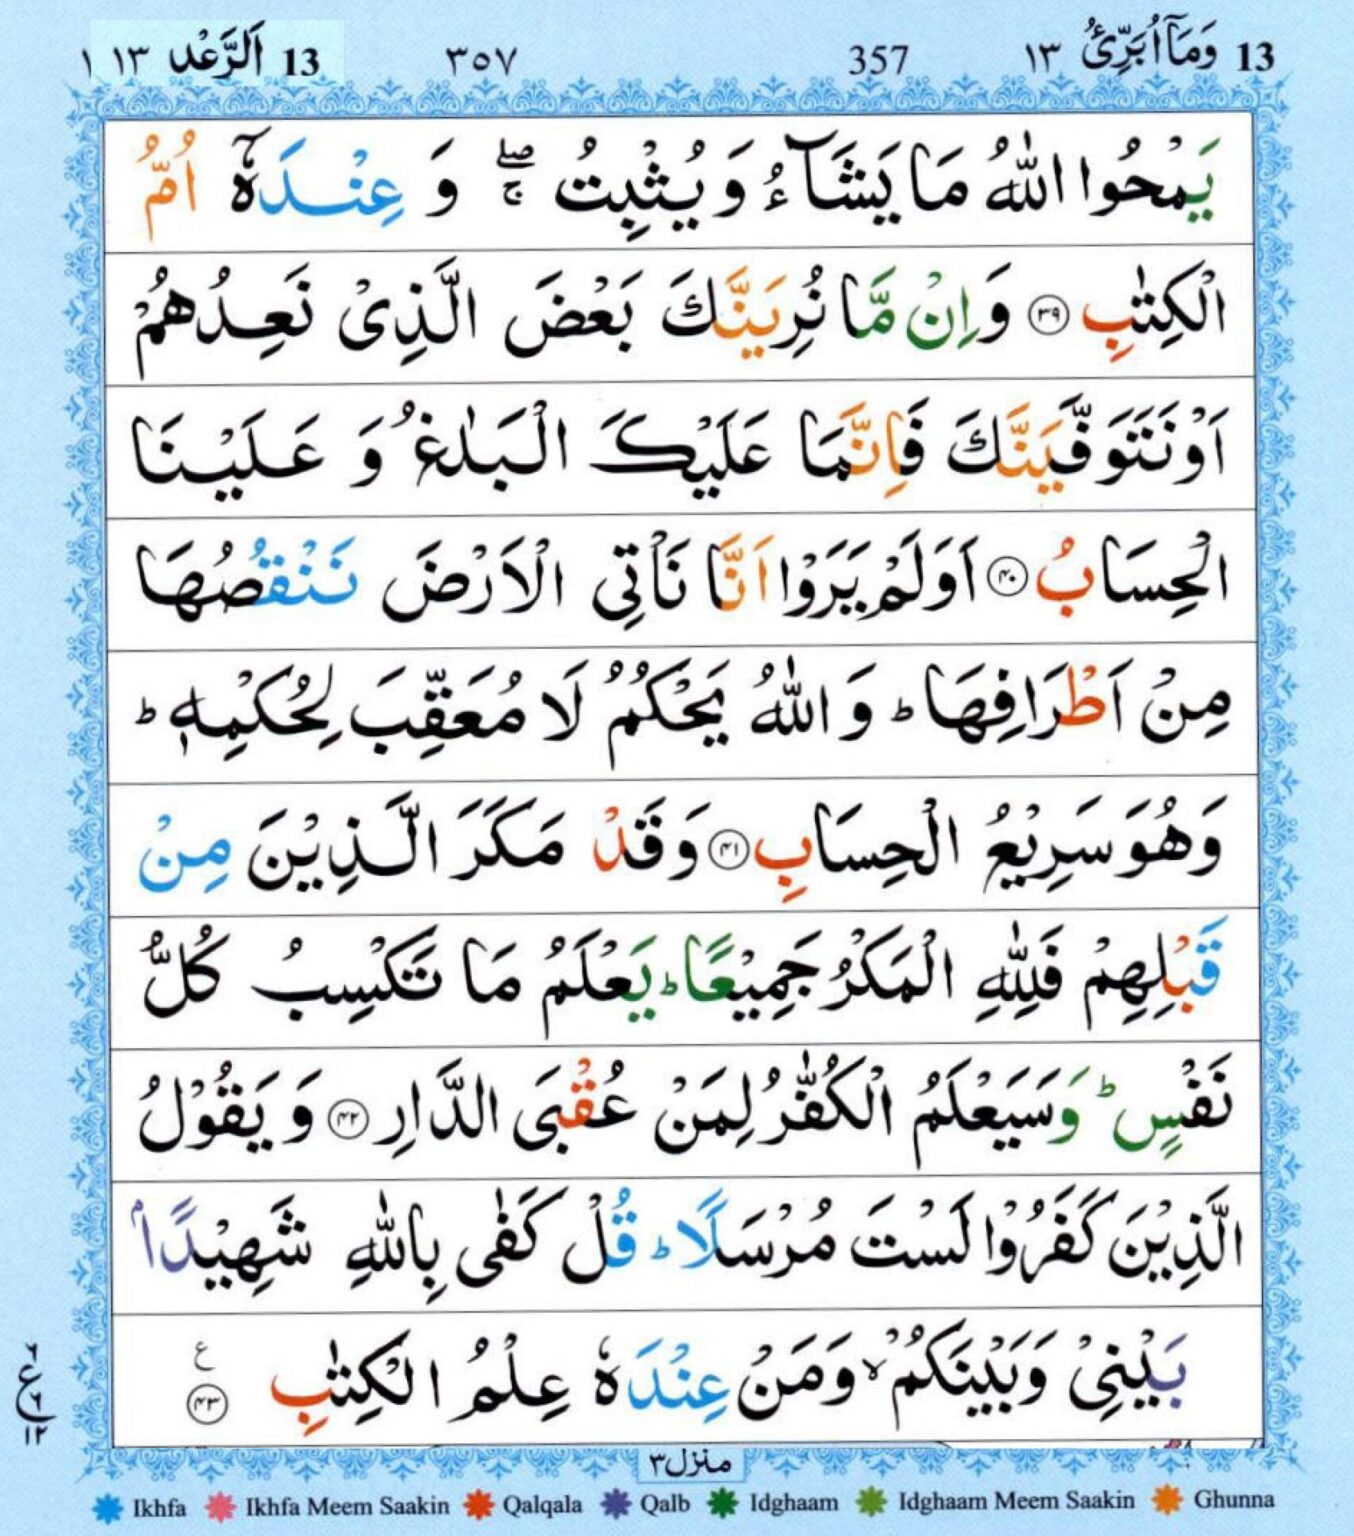 13 وَمَآ اُبَرِّئُ ١٣ 357 ٣٥٧ 13 اَلرَّعْد ١٣ ١
يَمْحُوا اللّٰهُ مَا يَشَآءُ وَ يُثْبِتُ ۚۖ وَ عِنْدَهٗۤ اُمُّ
الْكِتٰبِ ﴿٣٩﴾ وَ اِنْ مَّا نُرِيَنَّكَ بَعْضَ الَّذِىْ نَعِدُهُمْ
اَوْ نَتَوَفَّيَنَّكَ فَاِنَّمَا عَلَيْكَ الْبَلٰغُ وَ عَلَيْنَا
الْحِسَابُ ﴿٤٠﴾ اَوَلَمْ يَرَوْا اَنَّا نَاْتِى الْاَرْضَ نَنْقُصُهَا
مِنْ اَطْرَافِهَا ؕ وَ اللّٰهُ يَحْكُمُ لَا مُعَقِّبَ لِحُكْمِهٖ ؕ
وَهُوَ سَرِيْعُ الْحِسَابِ ﴿٤١﴾ وَ قَدْ مَكَرَ الَّذِيْنَ مِنْ
قَبْلِهِمْ فَلِلّٰهِ الْمَكْرُ جَمِيْعًا ؕ يَعْلَمُ مَا تَكْسِبُ كُلُّ
نَفْسٍ ؕ وَسَيَعْلَمُ الْكُفّٰرُ لِمَنْ عُقْبَى الدَّارِ ﴿٤٢﴾ وَ يَقُوْلُ
الَّذِيْنَ كَفَرُوْا لَسْتَ مُرْسَلًا ؕ قُلْ كَفٰى بِاللّٰهِ شَهِيْدًۢا
بَيْنِىْ وَ بَيْنَكُمْ ۙ وَمَنْ عِنْدَهٗ عِلْمُ الْكِتٰبِ ﴿٤٣﴾ ع
٦ ع ٦ ١٢
منزل ٣
Ikhfa Ikhfa Meem Saakin Qalqala Qalb Idghaam Idghaam Meem Saakin Ghunna